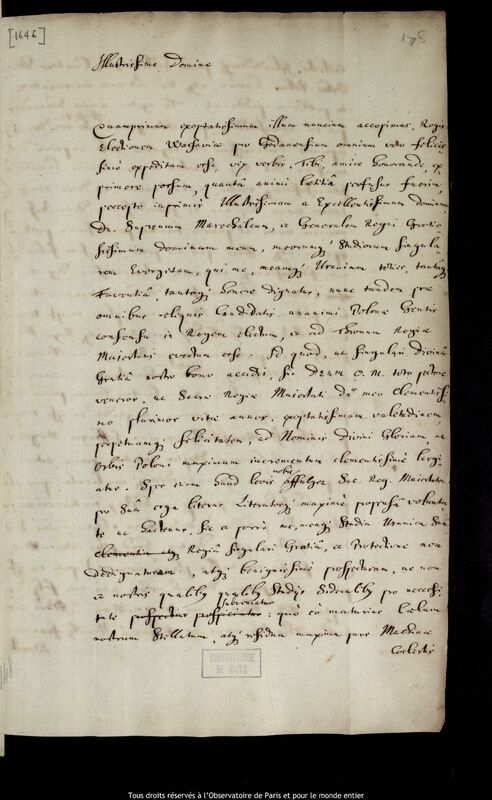 [1646]
178
Illustrissime Domine
Quamprimum exoptatissimum illum nuncium accepimus, Regis
Electionem Warsaviæ pro Gedanensium omnium voto felicis-
simè expeditam esse, vix verbis, Tibi amice honorande, ex-
primere possum, quantâ animi lætitiâ perfusus fuerim,
percepto inprimis Illustrissimum et Excellentissimum Dominum
Dn. Supremum Mareschalcum, et Generalem Regni Gratio-
sissimum Dominum meum, meorumq; Studiorum singula-
rem Evergetam, qui me, meamq; Uraniam toties, tantoq;
Favore, tantoq; honore dignatus, nunc tandem præ
omnibus reliquis Candidatis unanimi Polonæ Gentis
consensu in Regem electum, et ad Thronum Regiæ
Maiestatis evectum esse. Id quod, ut singulari divinâ
Gratiâ nostro bono accidit, sic DEUM O. M. toto pectore
veneror, ut Sacræ Regiæ Maiestati Dno meo Clementissi-
mo plurimos vitæ annos, exoptatissimam valetudinem,
perpetuamq; felicitatem, ad Nominis Divini Gloriam, et
Orbis Poloni maximum incrementum clementissimè largi-
atur. Spes etiam haud levis nobis affulget Sac. Reg. Maiestatem
pro suâ erga literas, Literatosq; maximè propensâ volunta-
te ut hactenus, sic et porrò me, meaq; Studia Uranica suâ
Clementiâ atq; Regiâ singulari Gratiâ, et Protectione non
dedignaturam, atq; benignissimè prospecturam, ne non
et nostris qualibus qualibus Studijs Sideralibus pro necessi-
tate prospectus prospiciatur subveniatur: quò eò maturius Cœlum
nostrum Stellatum, atq; residua maxima pars Machinæ
Cœlestis
OBSERVATOIRE
DE PARIS
Tous droits réservés à l'Observatoire de Paris et pour le monde entier